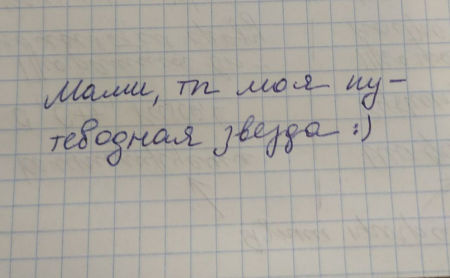 Мами, ты моя пу-
теводная звезда :)